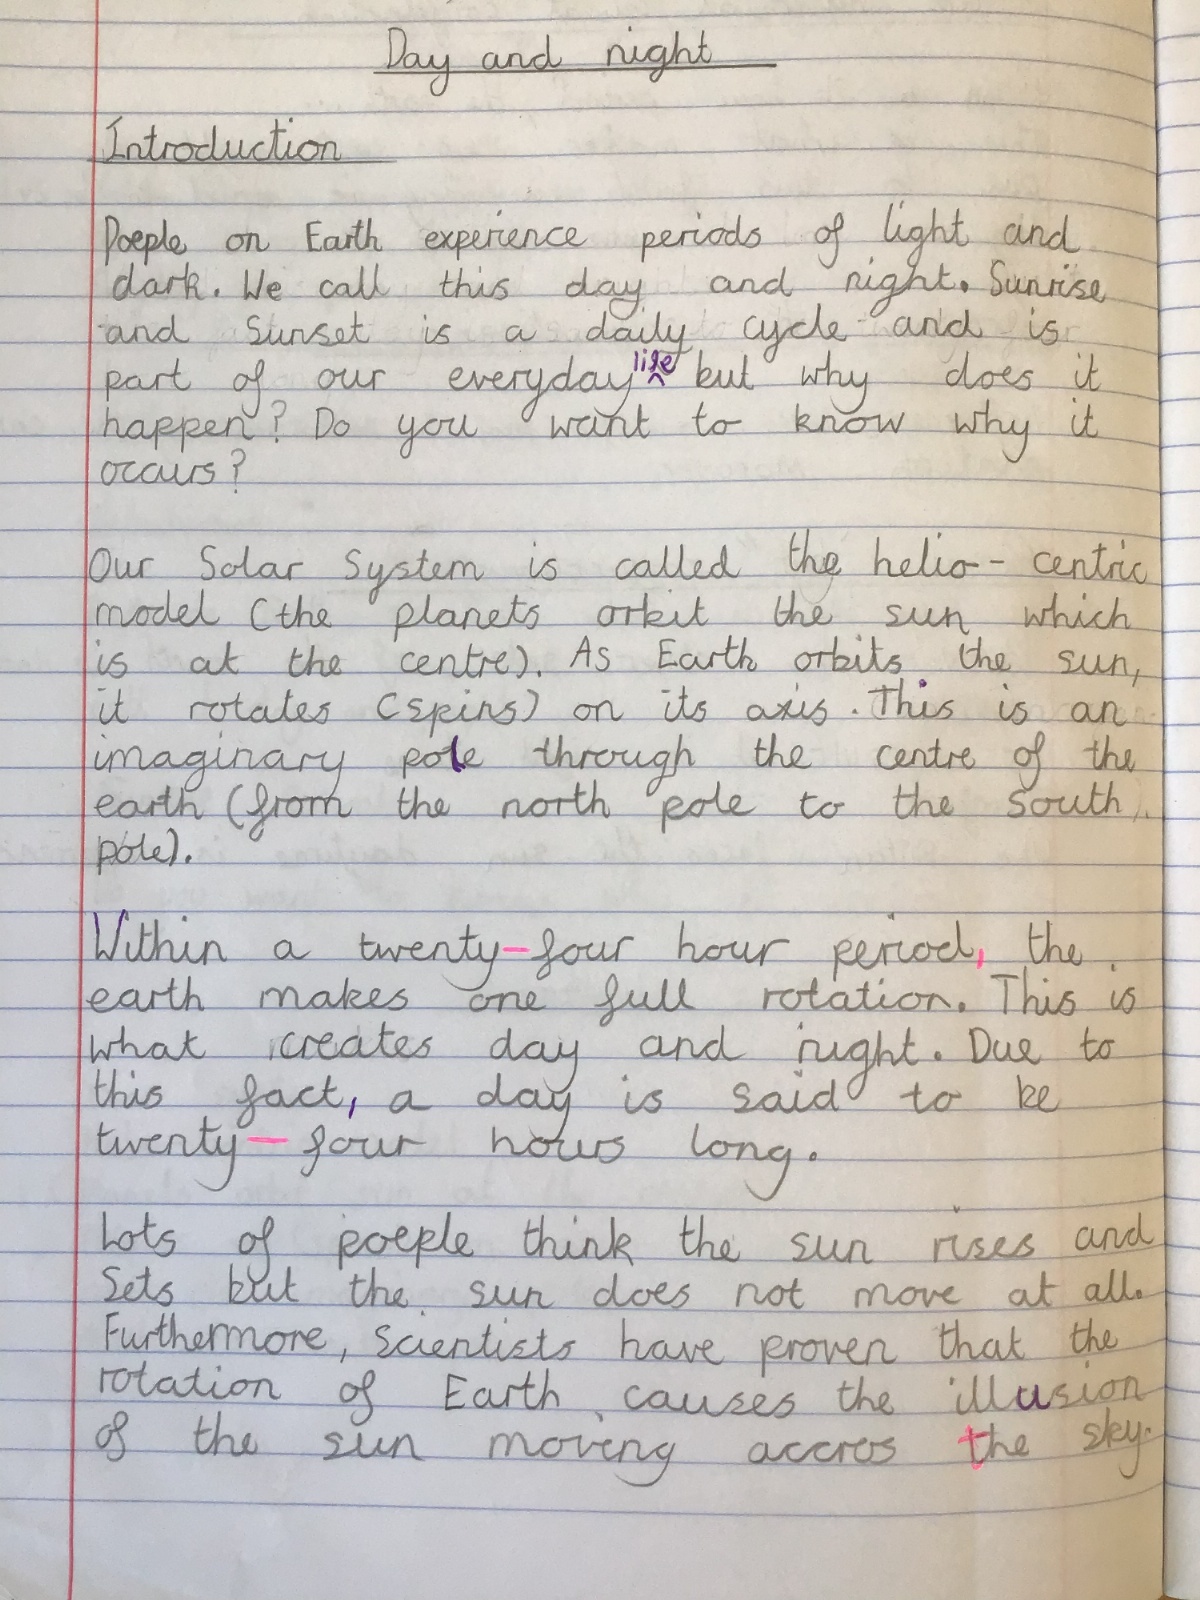 Day and night
Introduction
Poeple on Earth experience periods of light and
dark. We call this day and night. Sunrise
and Sunset is a daily cycle and is
part of our everyday life but why does it
happen? Do you want to know why it
occurs?
Our Solar System is called the helio- centric
model (the planets orbit the sun which
is at the centre). As Earth orbits the sun,
it rotates (spins) on its axis. This is an
imaginary pole through the centre of the
earth (from the north pole to the south
pole).
Within a twenty-four hour period, the
earth makes one full rotation. This is
what creates day and night. Due to
this fact, a day is said to be
twenty-four hours long.
Lots of poeple think the sun rises and
sets but the sun does not move at all.
Furthermore, scientists have proven that the
rotation of Earth causes the illusion
of the sun moving accros the sky.